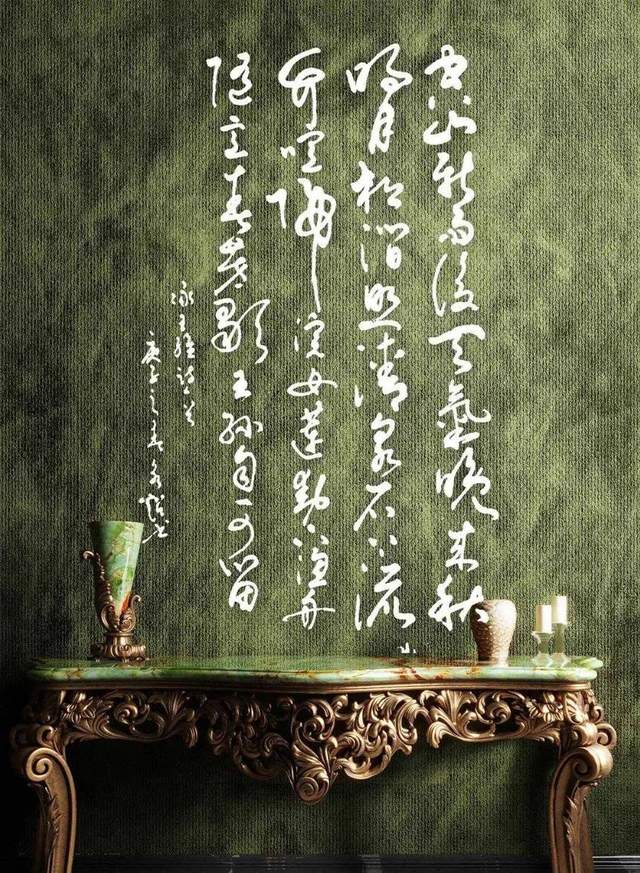 空山新雨後天氣晚来秋
明月松間照清泉石上流
竹喧歸浣女蓮動下漁舟
随意春芳歇王孫自可留
录王維詩一首